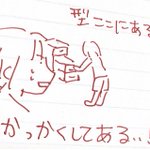 型ここにある
かっかくしてある..!